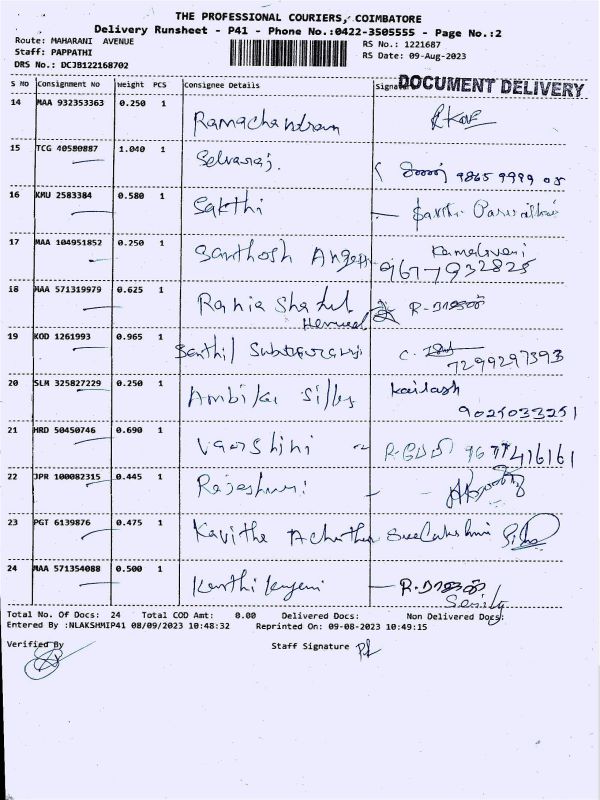 THE PROFESSIONAL COURIERS, COIMBATORE
Delivery Runsheet - P41 - Phone No.:0422-3505555 - Page No.:2
Route: MAHARANI AVENUE
Staff: PAPPATHI
DRS No.: DCJB122168702
RS No.: 1221687
RS Date: 09-Aug-2023
S No Consignment No Weight PCS Consignee Details Signature
DOCUMENT DELIVERY
14 MAA 932353363 0.250 1 Ramachandram
15 TCG 40580887 1.040 1 Selvaraj. 98659999 05
16 KMU 2583384 0.580 1 Sakthi
17 MAA 104951852 0.250 1 Santhosh
9677932825
18 MAA 571319979 0.625 1 Rania R. ராஜன்
19 KOD 1261993 0.965 1 Senthil C.
7299297393
20 SLM 325827229 0.250 1 Ambika Silks Kailash
9025033251
21 HRD 50450746 0.690 1 Varshini 9677416161
22 JPR 100082315 0.445 1 Rajeshwari
23 PGT 6139876 0.475 1 Kavitha
24 MAA 571354088 0.500 1 R. ராஜன்
Total No. Of Docs: 24 Total COD Amt: 0.00 Delivered Docs: Non Delivered Docs:
Entered By :NLAKSHMIP41 08/09/2023 10:48:32 Reprinted On: 09-08-2023 10:49:15
Verified By Staff Signature